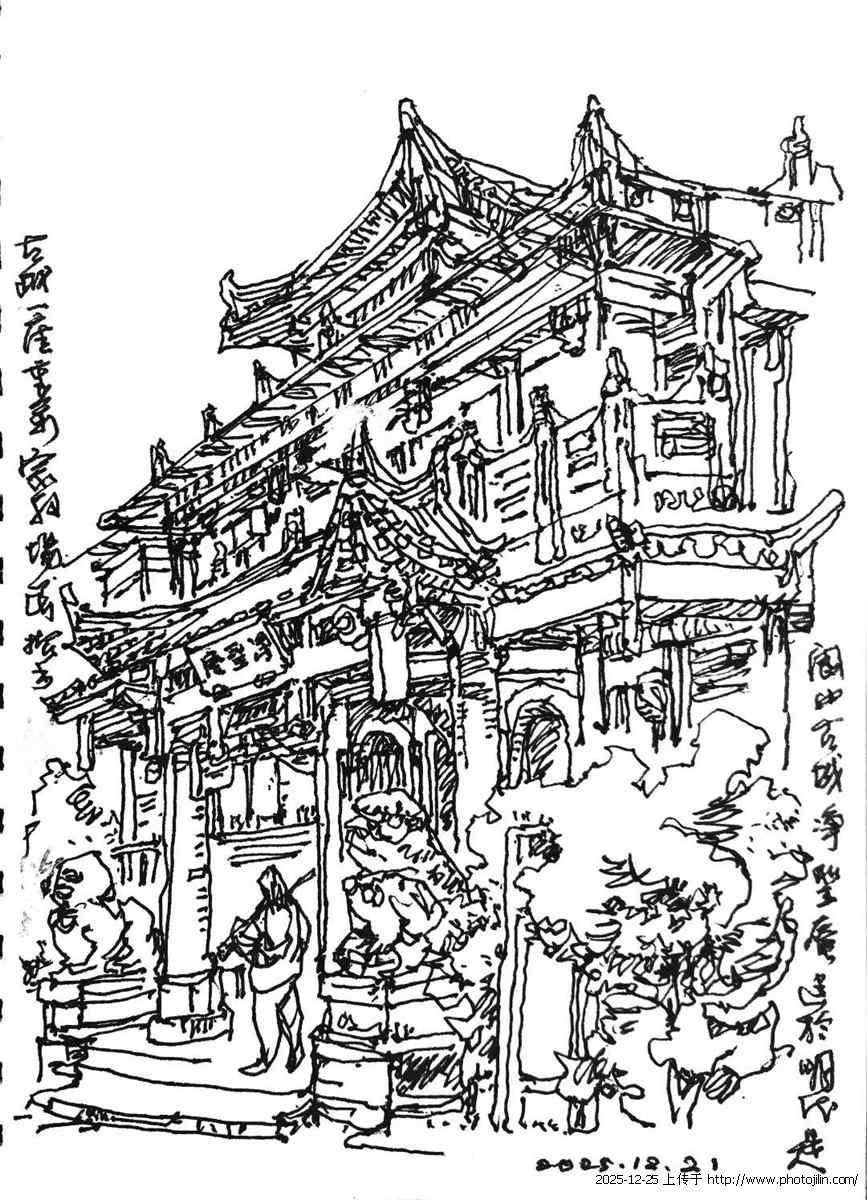 阆中古城净聖庵建於明代是
古城一座重要宗教場
淨聖庵
2025.12.21
2025-12-25 上传于 http://www.photojilin.com/